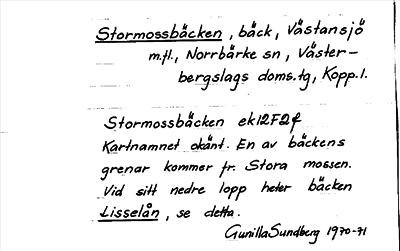 Stormossbäcken, bäck, Västansjö
m.fl., Norrbärke sn, Väster-
bergslags doms.tg, Kopp.l.
Stormossbäcken ek12F2f
Kartnamnet okänt. En av bäckens
grenar kommer fr. Stora mossen.
Vid sitt nedre lopp heter bäcken
Lisselån, se detta.
Gunilla Sundberg 1970-71